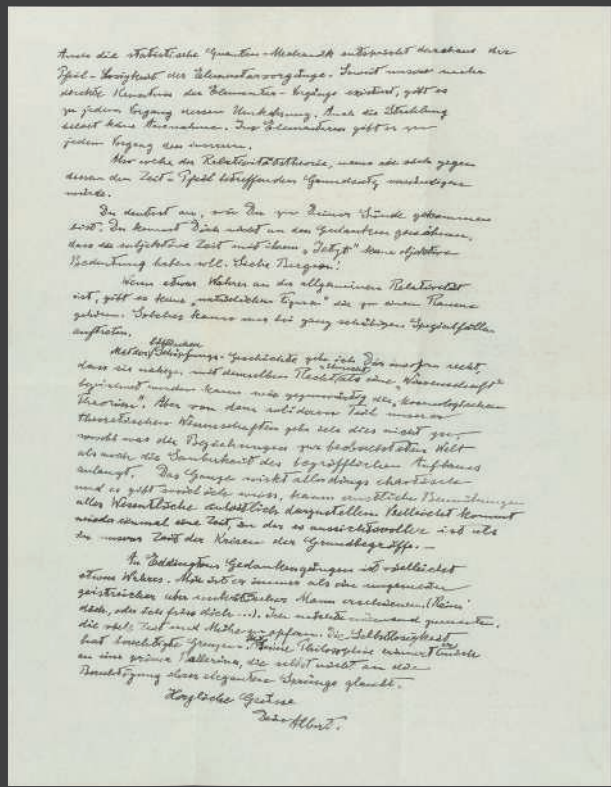 Auch die statistische Quanten-Mechanik entspricht durchaus der
Pfeil-Losigkeit der Elementarvorgänge. Soweit unsere
direkte Kenntnis der Elementar-Vorgänge existiert, gibt es
zu jedem Vorgang dessen Umkehrung. Auch die Strahlung
keine Ausnahme. Im Elementaren gibt es zu
jedem Vorgang den inversen.
Aber wehe der Relativitätstheorie, wenn sie sich gegen
diesen den Zeit-Pfeil betreffenden Grundsatz versündigen
würde.
Du deutest an, wie Du zu Deiner Sünde gekommen
bist. Du kannst Dich nicht an den Gedanken gewöhnen,
dass die subjektive Zeit mit ihrem "Jetzt" keine objektive
Bedeutung haben soll. Siehe Bergson!
Wenn etwas Wahres an der allgemeinen Relativität
ist, gibt es keine "natürlichen Figuren" die zu einem Raume
gehören. Solches kann nur bei ganz schäbigen Spezialfällen
auftreten.
Mit der biblischen Schöpfungs-Geschichte gebe ich Dir insofern recht,
dass sie nahezu mit demselben Recht als eine "Wissenschaft"
bezeichnet werden kann wie gegenwärtig die "kosmologischen
Theorien". Aber von dem solideren Teil unserer
theoretischen Wissenschaften gebe ich dies nicht zu,
was die Beziehungen zur beobachteten Welt
als auch die Sauberkeit des begrifflichen Aufbaues
anlangt. Das Ganze wirkt allerdings chaotisch
und es gibt soviel ich weiss, kaum ernstliche Bemühungen
alles Wesentliche einheitlich darzustellen. Vielleicht kommt
wieder einmal eine Zeit, in der es aussichtsvoller ist als
in unserer Zeit der Krisen der Grundbegriffe. —
In Eddingtons Gedankengängen ist vielleicht
etwas Wahres. Mir ist er immer als ein ungemein
geistreicher aber unkritischer Mann erschienen. (Reim
dich, oder ich fress dich ...). Ich möchte niemand zumuten,
die viele Zeit und Mühe zu opfern. Die Selbstlosigkeit
hat berechtigte Grenzen. Seine Philosophie erinnert mich
an eine prima Ballerina, die selbst nicht an die
Berechtigung ihrer eleganten Sprünge glaubt.
Herzliche Grüsse
Dein Albert.